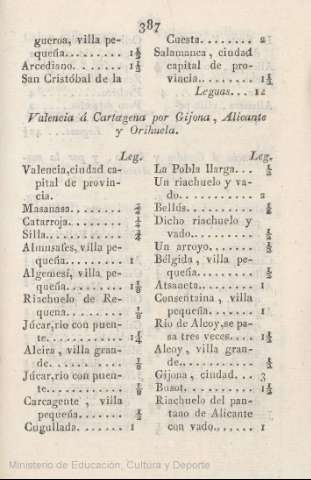 387
gueroa, villa pe-
queña........ 1½
Arcediano. .... 1½
San Cristóbal de la
Cuesta........ 2
Salamanca, ciudad
capital de pro-
vincia........ 1½
Leguas... 12
Valencia á Cartagena por Gijona, Alicante
y Orihuela.
Leg.
Valencia, ciudad ca-
pital de provin-
cia.
Masanasa.......
Catarroja. .....
Silla..........
Almusafes, villa pe-
queña......... 1
Algemesí, villa pe-
queña......... 1⅛
Riachuelo de Re-
quena......... ⅛
Júcar, rio con puen-
te............ 1¼
Alcira, villa gran-
de............ ⅛
Júcar, rio con puen-
te............ ⅛
Carcagente, villa
pequeña....... ½
Cugullada...... 1
Leg.
La Pobla llarga... ½
Un riachuelo y va-
do............ 2
Bellús......... ½
Dicho riachuelo y
vado.......... ½
Un arroyo...... ½
Bélgida, villa pe-
queña......... ½
Atsaneta....... 1
Consentaina, villa
pequeña....... 1
Rio de Alcoy, se pa-
sa tres veces.... 1½
Alcoy, villa gran-
de............ ½
Gijona, ciudad... 3
Busot.......... 1½
Riachuelo del pan-
tano de Alicante
con vado...... 1
Ministerio de Educación, Cultura y Deporte